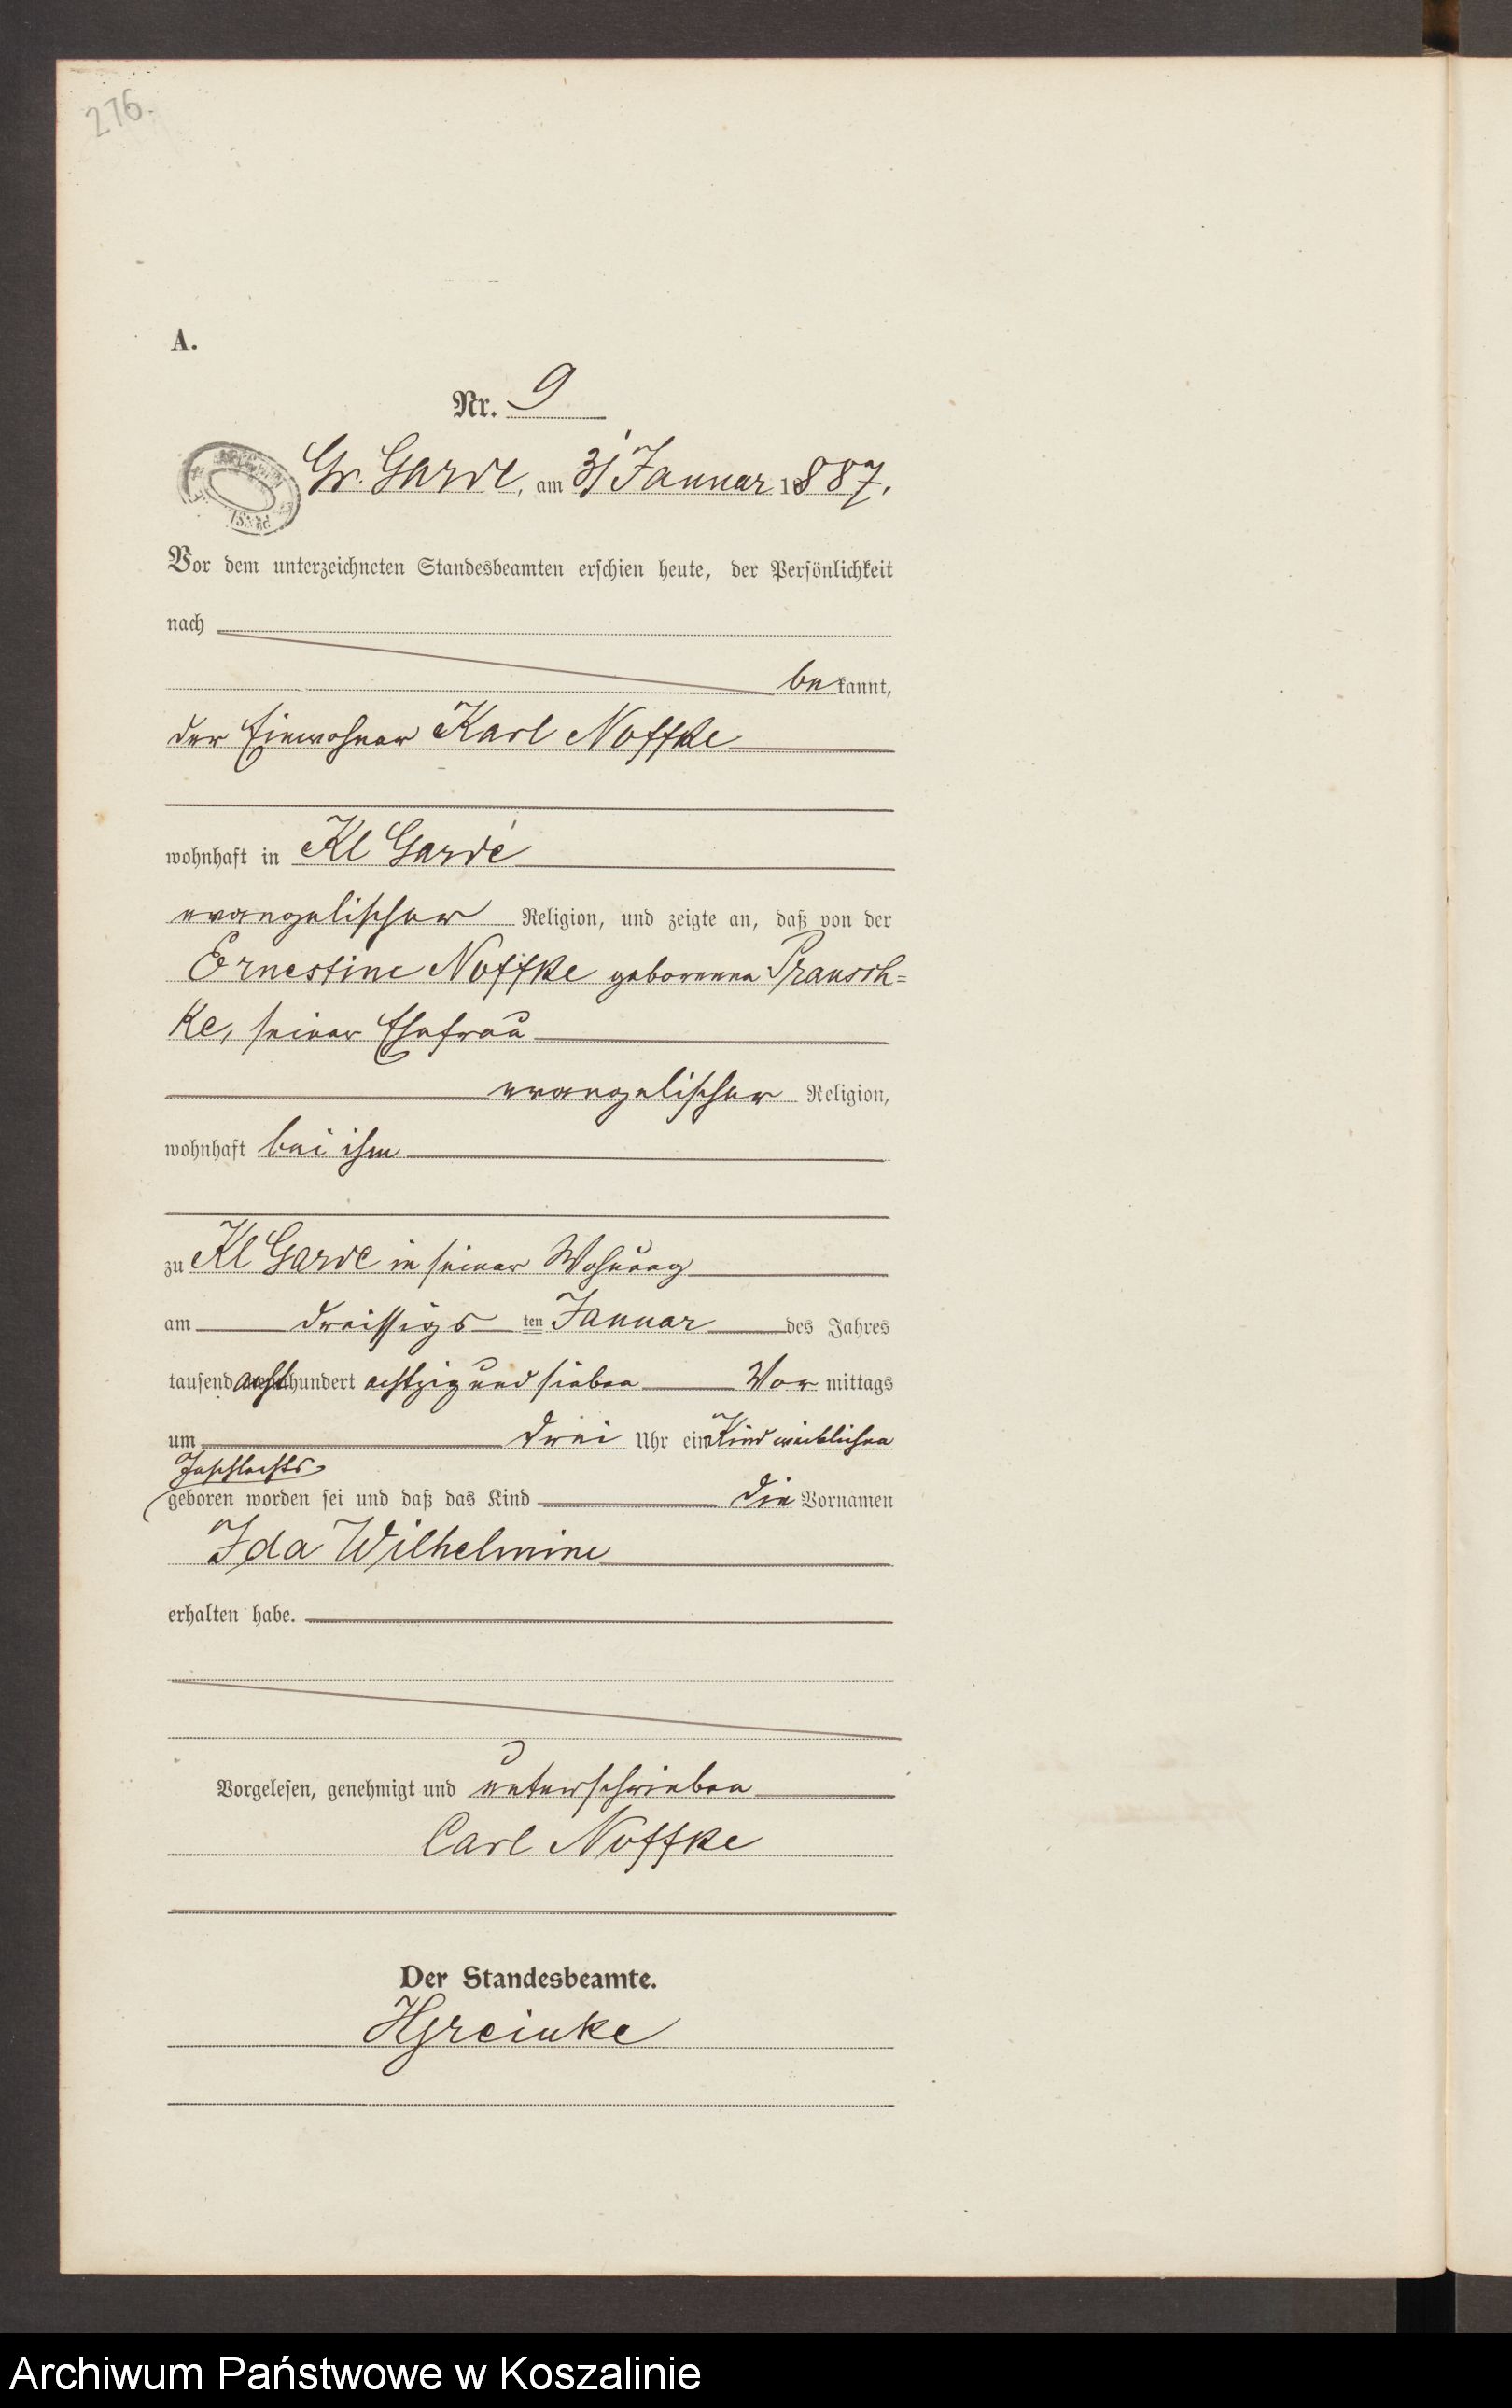 276.
A.
Nr. 9
Gr. Garde, am 31 Januar 1887.
Vor dem unterzeichneten Standesbeamten erschien heute, der Persönlichkeit
nach
bekannt,
der Einwohner Karl Noffke
wohnhaft in Kl Garde
evangelischer Religion, und zeigte an, daß von der
Ernestine Noffke geborenen Prausch=
ke, seiner Ehefrau
evangelischer Religion,
wohnhaft bei ihm
zu Kl Garde in seiner Wohnung
am dreissigs ten Januar des Jahres
tausend acht hundert achtzig und sieben Vor mittags
um drei Uhr ein Kind weiblichen
Geschlechts
geboren worden sei und daß das Kind die Vornamen
Ida Wilhelmine
erhalten habe.
Vorgelesen, genehmigt und unterschrieben
Carl Noffke
Der Standesbeamte.
Archiwum Państwowe w Koszalinie